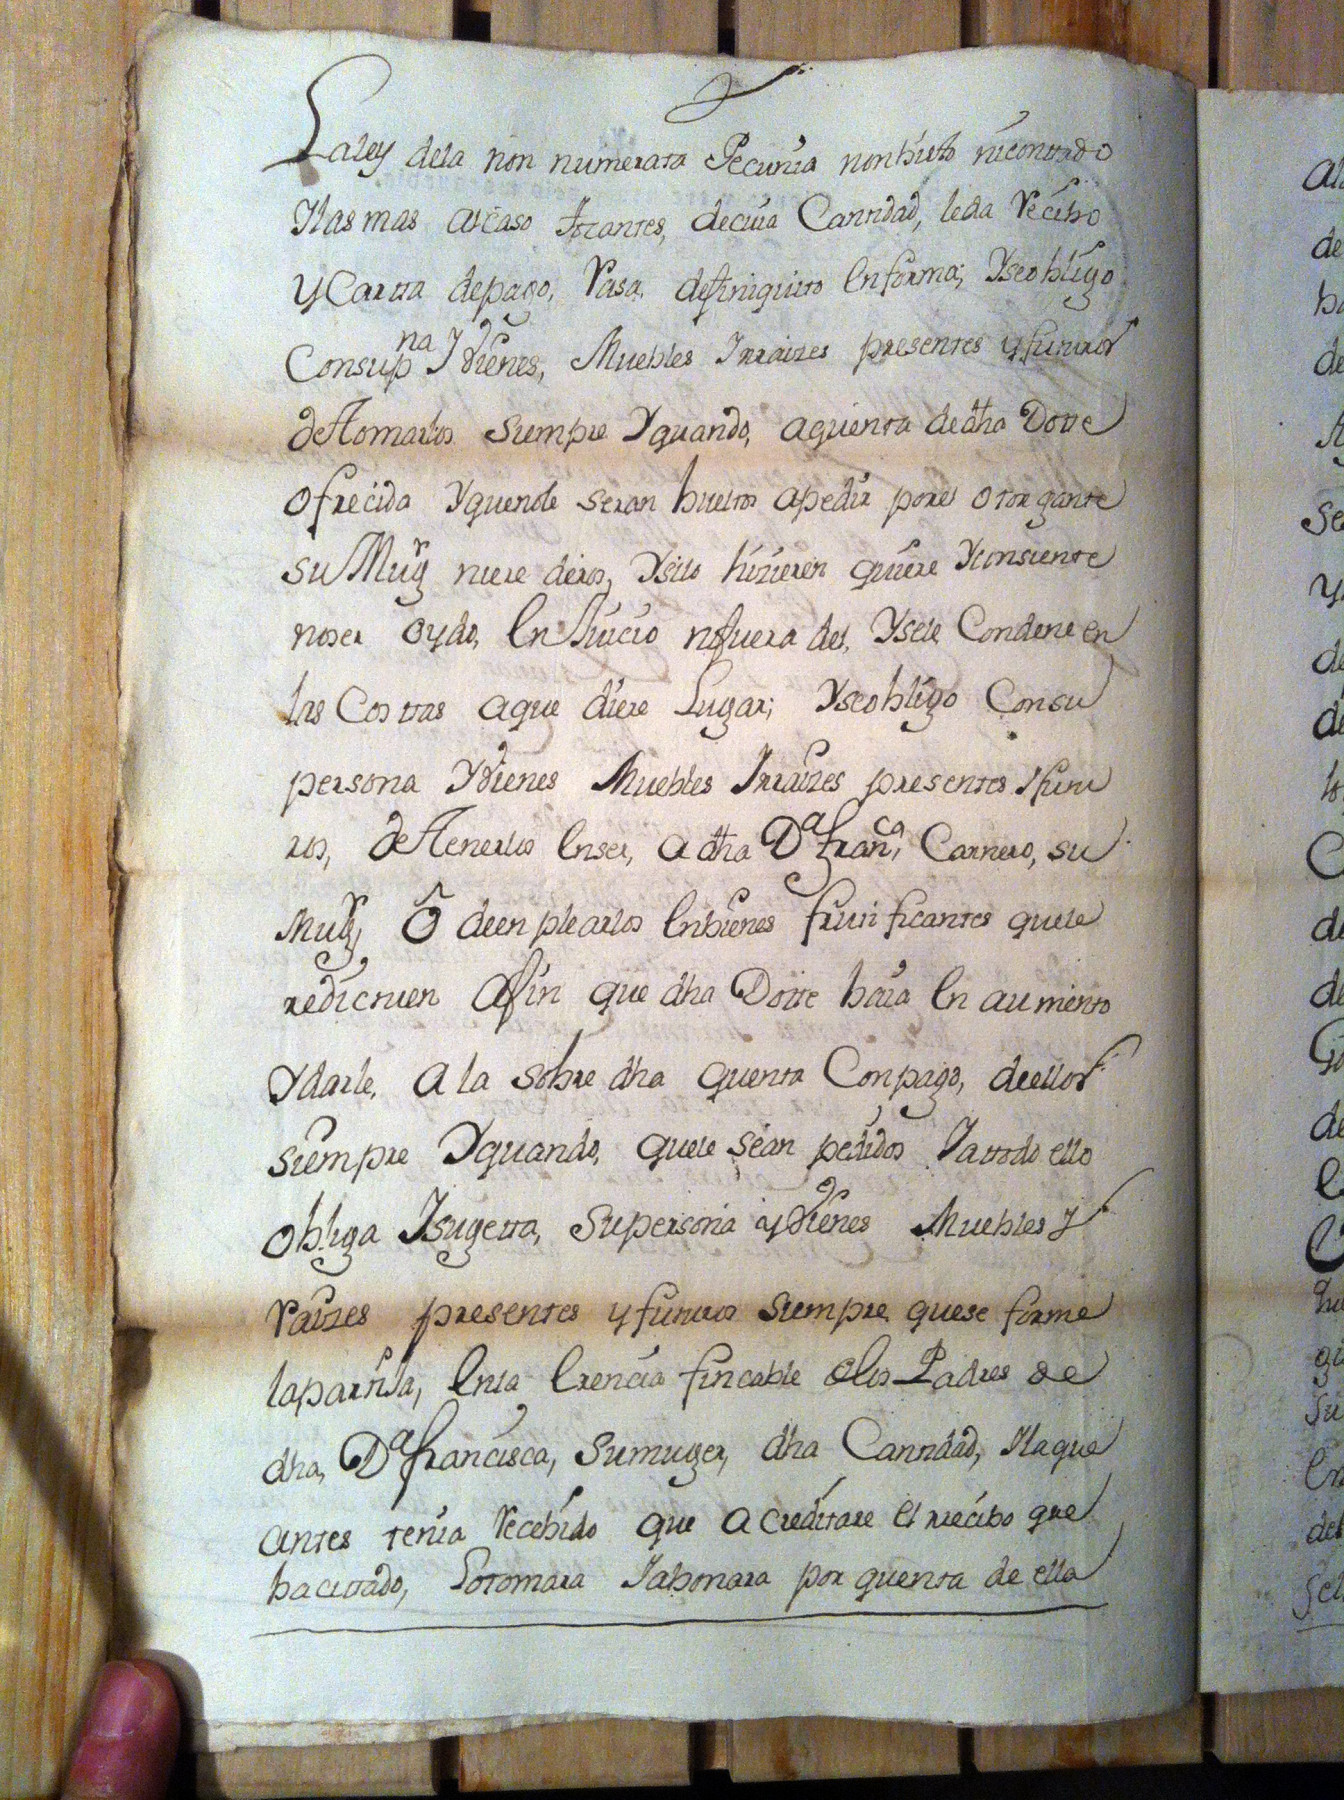 Laley dela non numerata Pecunia non huto ni contado
Ylas mas alcaso tocantes, decuia Cantidad, leda Recibo
y Carta depago, Rasa, definiquito en forma; Yseobligo
Consup.na Y vienes, Muebles Yrraizes presentes y futuros
de tomarlos siempre Yquando, aquenta de dha Dotte
ofrecida Yquende seran bueltos apedir porel otorgante
su Mug.r niere deros, Ysilo hizieren quiere Yconsiente
noser oydo, en Juicio nifuera del, Ysele Condene en
las Costtas aque diere Lugar; Yseobligo Consu
persona Yvienes Muebles Yrraizes presentes Yfutu
ros, de tenerlos enser, a dha D.a Fran.ca Carnero, su
Mug.r O deenplearlos enbienes frutificantes quele
redictuen afin que dha Dotte baia en aumento
Ydarle, a la sobre dha quenta Conpago, deellos
siempre Yquando, quele sean pedidos Yattodo ello
obliga Ysugetta, supersona y vienes Muebles y
Raizes presentes y futuros siempre quese forme
laparttida, enla erencia fincable delos Padres de
dha, D.a Francisca, sumuger, dha Cantidad, Ylaque
antes tenia Recebido que acreditare el recibo que
hacittado, Lotomara Yabonara por quenta de ella